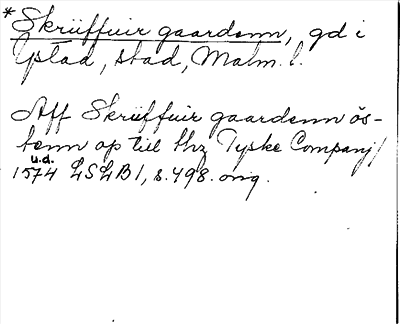 *Skrüffuir gaardenn, gd i
Ystad, stad, Malm. l.
Aff Skrüffuir gaardenn ös-
tenn op till thz Tyske Companj/
u.d.
1574 LSLB1, s. 498. orig.